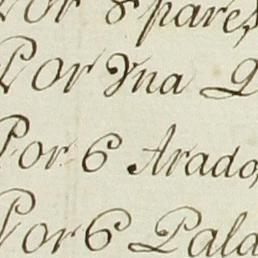 Por 8 pares
Por Yna
Por 6 Arado
Por 6 Pala